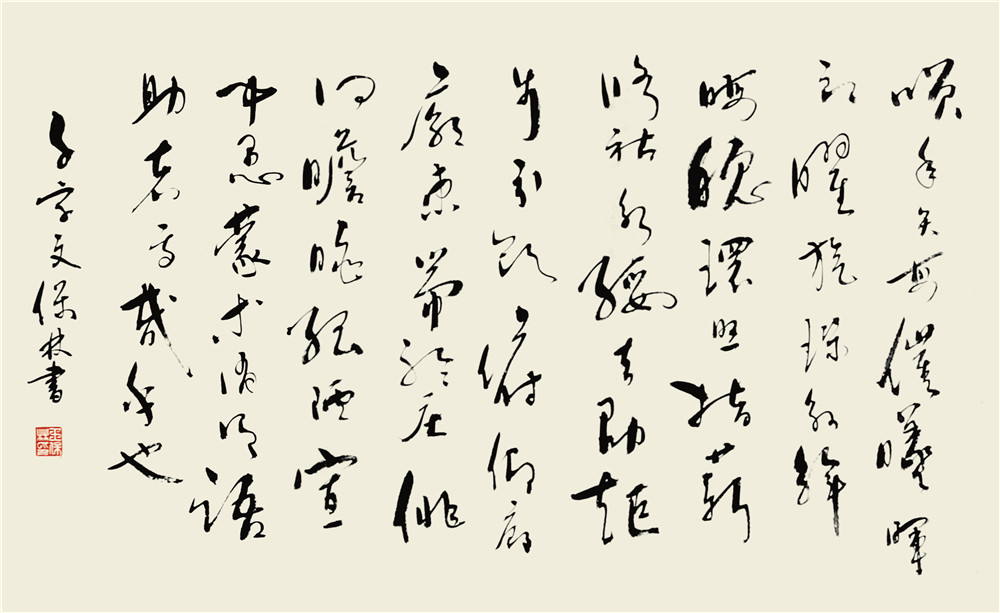 咲年矢每催曦暉
朗曜旋璣懸斡
晦魄環照指薪
修祜永綏吉劭矩
步引領俯仰廊
廟束帶矜莊徘
徊瞻眺孤陋寡
聞愚蒙等誚謂語
助者焉哉乎也
千字文保林書